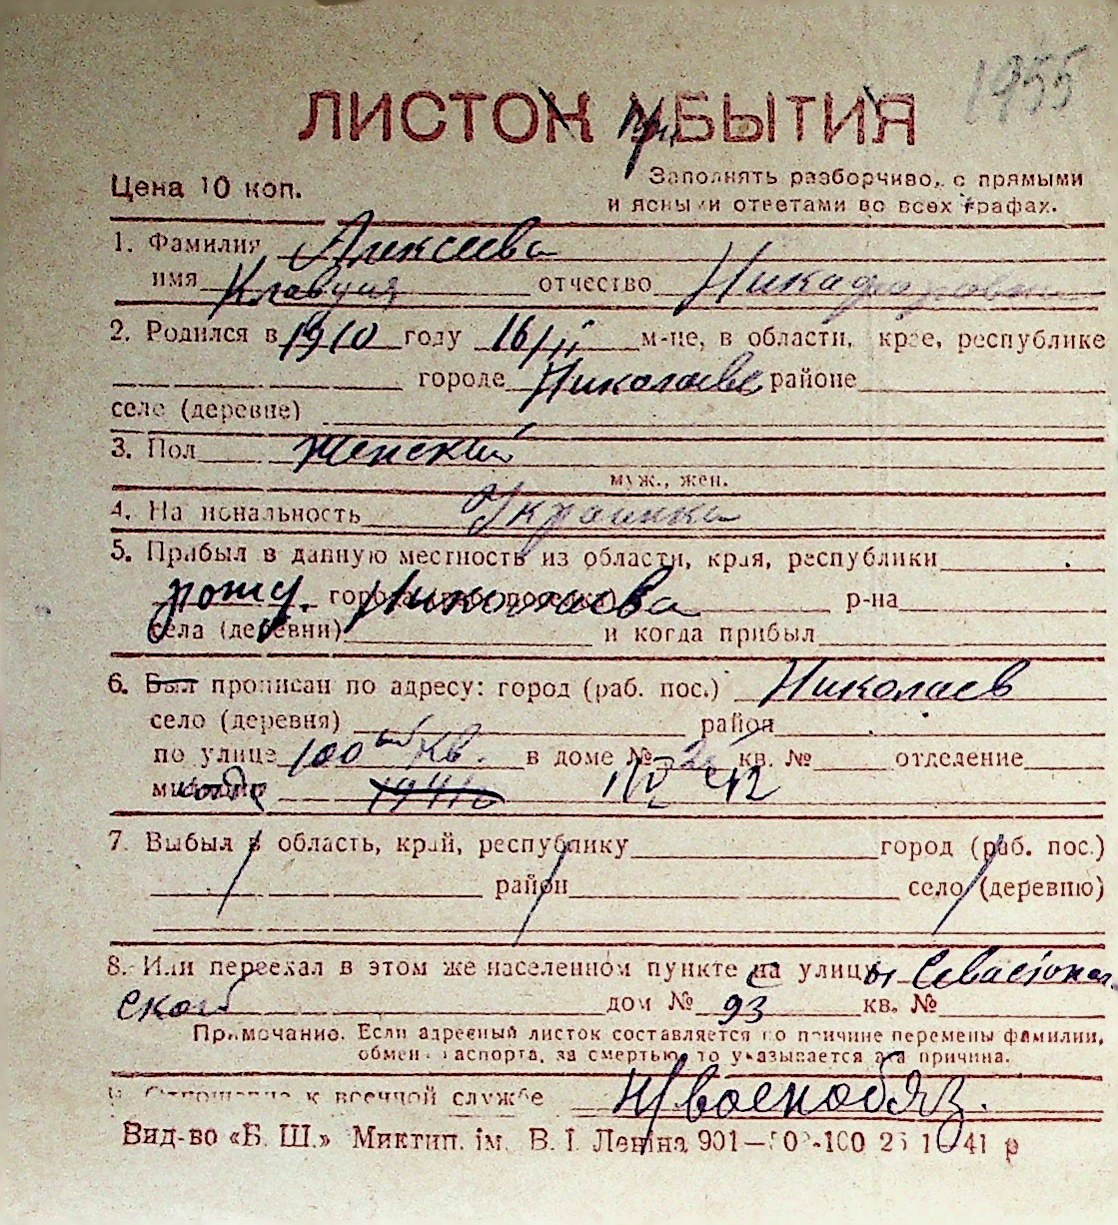 1955
ЛИСТОК при БЫТИЯ
Цена 10 коп.
Заполнять разборчиво, с прямыми
и ясными ответами во всех графах.
1. Фамилия Алексеева
имя Клавдия отчество Никафоровна
2. Родился в 1910 году 16/II м-це, в области, крае, республике
городе Николаеве районе
село (деревне)
3. Пол женский
муж., жен.
4. Национальность Украинка
5. Прибыл в данную местность из области, края, республики
рожд. Николаева р-на
села (деревни) и когда прибыл
6. Был прописан по адресу: город (раб. пос.) Николаев
село (деревня) район
по улице 100 ый кв. в доме № кв. № отделение
1941
7. Выбыл в область, край, республику город (раб. пос.)
район село (деревню)
8. Или переехал в этом же населенном пункте с улицы Севастополь
ской дом № 93 кв. №
Примечание. Если адресный листок составляется по причине перемены фамилии,
обмена паспорта, за смертью, то указывается эта причина.
Отношение к военной службе н/военнообяз.
Вид-во «Б. Ш.» Миктип. ім. В. І. Леніна 901